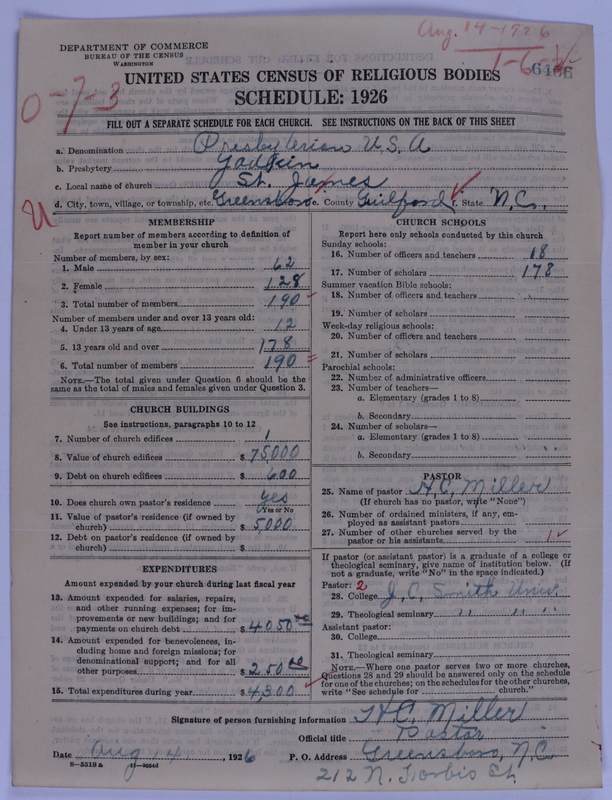 Aug. 14-1926
DEPARTMENT OF COMMERCE
BUREAU OF THE CENSUS
WASHINGTON
1-6
6466
UNITED STATES CENSUS OF RELIGIOUS BODIES
SCHEDULE: 1926
0-7-3
FILL OUT A SEPARATE SCHEDULE FOR EACH CHURCH. SEE INSTRUCTIONS ON THE BACK OF THIS SHEET
a. Denomination Presbyterian U.S.A
b. Presbytery Yadkin
c. Local name of church St. James
d. City, town, village, or township, etc. Greensboro e. County Guilford f. State N.C.
MEMBERSHIP
Report number of members according to definition of
member in your church
Number of members, by sex:
1. Male 62
2. Female 128
3. Total number of members 190
Number of members under and over 13 years old:
4. Under 13 years of age 12
5. 13 years old and over 178
6. Total number of members 190
NOTE.—The total given under Question 6 should be the
same as the total of males and females given under Question 3.
CHURCH BUILDINGS
See instructions, paragraphs 10 to 12
7. Number of church edifices 1
8. Value of church edifices $ 75,000
9. Debt on church edifices $ 600
10. Does church own pastor's residence yes
(Yes or No)
11. Value of pastor's residence (if owned by
church) $ 5,000
12. Debt on pastor's residence (if owned by
church) $
EXPENDITURES
Amount expended by your church during last fiscal year
13. Amount expended for salaries, repairs,
and other running expenses; for im-
provements or new buildings; and for
payments on church debt $ 4050.00
14. Amount expended for benevolences, in-
cluding home and foreign missions; for
denominational support; and for all
other purposes $ 250.00
15. Total expenditures during year $ 4,300
CHURCH SCHOOLS
Report here only schools conducted by this church
Sunday schools:
16. Number of officers and teachers 18
17. Number of scholars 178
Summer vacation Bible schools:
18. Number of officers and teachers
19. Number of scholars
Week-day religious schools:
20. Number of officers and teachers
21. Number of scholars
Parochial schools:
22. Number of administrative officers
23. Number of teachers—
a. Elementary (grades 1 to 8)
b. Secondary
24. Number of scholars—
a. Elementary (grades 1 to 8)
b. Secondary
PASTOR
25. Name of pastor H.C. Miller
(If church has no pastor, write "None")
26. Number of ordained ministers, if any, em-
ployed as assistant pastors
27. Number of other churches served by the
pastor or his assistants 1
If pastor (or assistant pastor) is a graduate of a college or
theological seminary, give name of institution below. (If
not a graduate, write "No" in the space indicated.)
Pastor: 2
28. College J.C. Smith Univ.
29. Theological seminary " " " "
Assistant pastor:
30. College
31. Theological seminary
NOTE.—Where one pastor serves two or more churches,
Questions 28 and 29 should be answered only on the schedule
for one of the churches; on the schedules for the other churches,
write "See schedule for church."
Signature of person furnishing information H.C. Miller
Official title Pastor
Date Aug 14, 1926 P. O. Address Greensboro, N.C
8-5518 a
212 N. Forbis St.